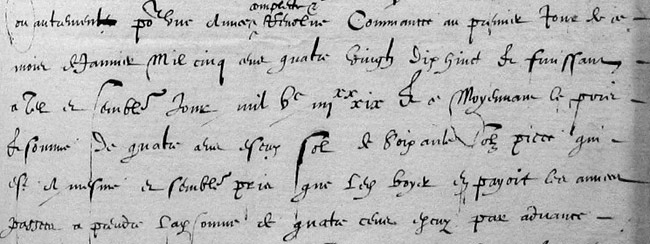 ou autrement po^r une annee complecte & revolue Commancee au premier Jour de ce
mois de Janvier Mil cinq cens quatre vingtz dix huict & finissant
a tel et semblable Jour mil v^c iiii^xx xix & ce Moyennant le pris
& somme de quatre cens escuz sol de soixante solz piece qui
est le mesme et semblable pris que led Boyer en payoit les annees
passees a prendre lad somme de quatre cens escuz par advance